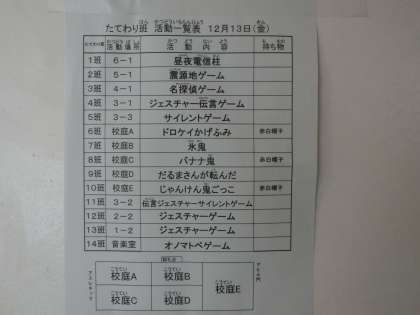 たてわり班 活動一覧表 12月13日(金)
たてわり班 活動場所 活動内容 持ち物
1班 6-1 昼夜電信柱
2班 5-1 震源地ゲーム
3班 4-1 名探偵ゲーム
4班 3-1 ジェスチャー伝言ゲーム
5班 3-3 サイレントゲーム
6班 校庭A ドロケイかげふみ 赤白帽子
7班 校庭B 氷鬼
8班 校庭C バナナ鬼 赤白帽子
9班 校庭D だるまさんが転んだ
10班 校庭E じゃんけん鬼ごっこ 赤白帽子
11班 3-2 伝言ジェスチャーサイレントゲーム
12班 2-2 ジェスチャーゲーム
13班 1-2 ジェスチャーゲーム
14班 音楽室 オノマトペゲーム
校庭A 校庭B 校庭E
校庭C 校庭D